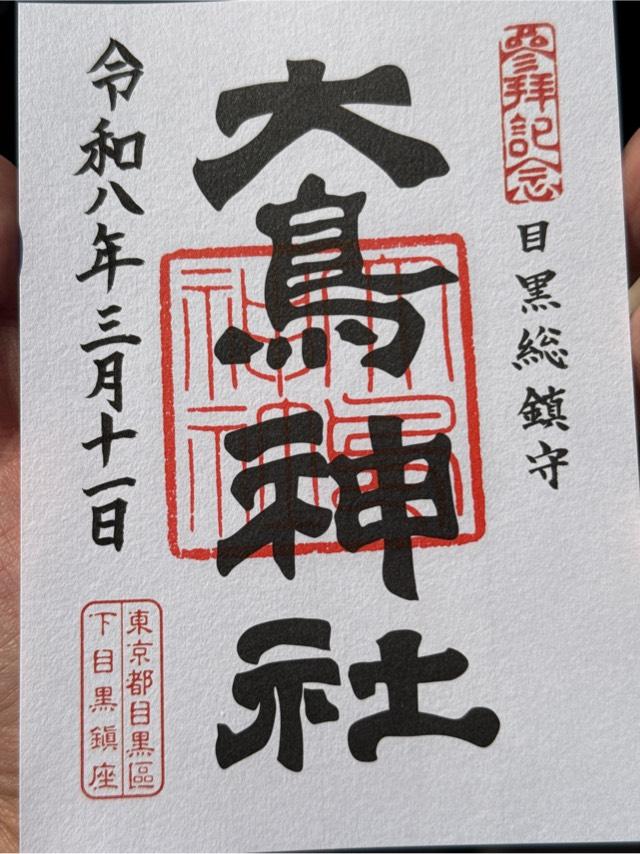 参拝記念
目黒総鎮守
大鳥神社
大鳥神社
令和八年三月十一日
東京都目黒區
下目黒鎮座